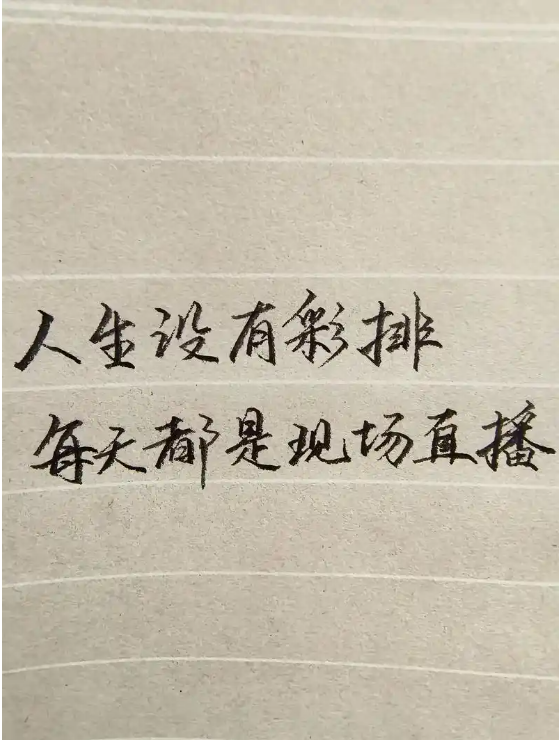 人生没有彩排
每天都是现场直播